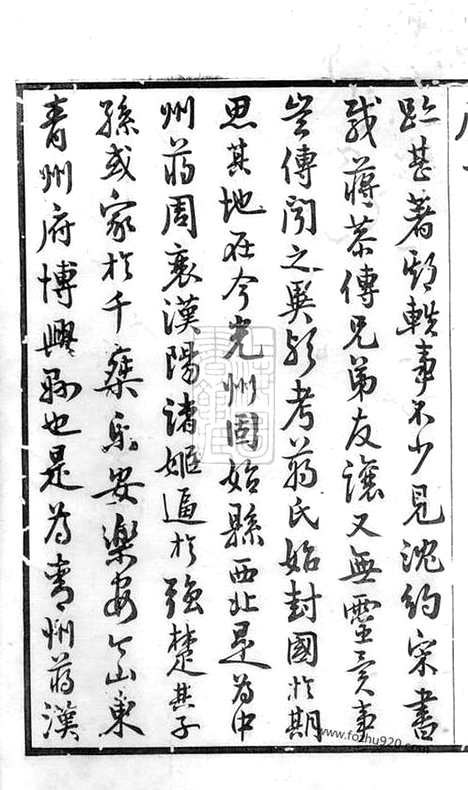 趾甚著耶軼事不少見沈約宋書
或蔣恭傳兄弟友讓又無靈貢事
豈傳聞之異歟考蔣氏始封國於期
思其地在今光州固始縣西北是為中
州蔣周衰漢陽諸姬逼於強楚其子
孫或家於千乘樂安樂安今山東
青州府博興縣也是為青州蔣漢
www.fozhu920.com